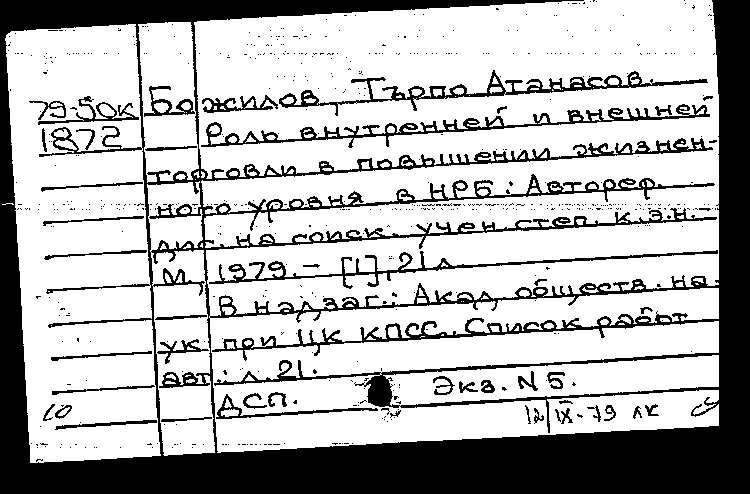 79-50к Божилов, Търпо Атанасов.
1872 Роль внутренней и внешней
торговли в повышении жизнен-
ного уровня в НРБ: Автореф.
дис. на соиск. учен. степ. к.э.н.-
М., 1979.- [1], 21 л.
В надзаг.: Акад. обществ. на-
ук при ЦК КПСС. Список работ
авт.: л. 21.
ДСП. Экз. N 5.
10 12/IX-79 лк